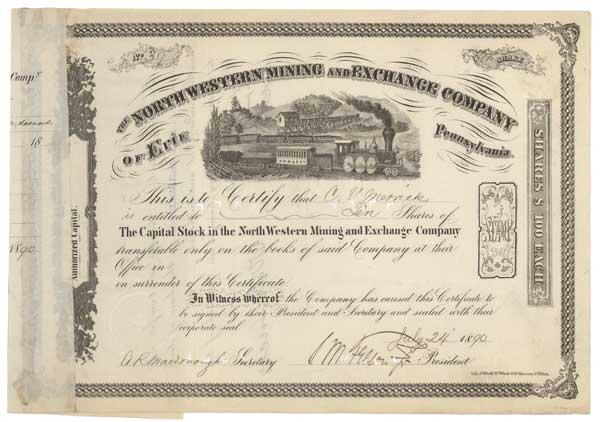 Comp'y
18
1890
Authorized Capital.
No. SHARE
THE NORTH WESTERN MINING AND EXCHANGE COMPANY
OF Erie Pennsylvania.
This is to Certify that C. V. Merrick
is entitled to Ten Shares of
The Capital Stock in the North Western Mining and Exchange Company
transferable only on the books of said Company at their
Office in
on surrender of this Certificate.
In Witness whereof the Company has caused this Certificate to
be signed by their President and Secretary and sealed with their
corporate seal
July 24 1890
A.R. Macdonough Secretary President
SHARES $100 EACH